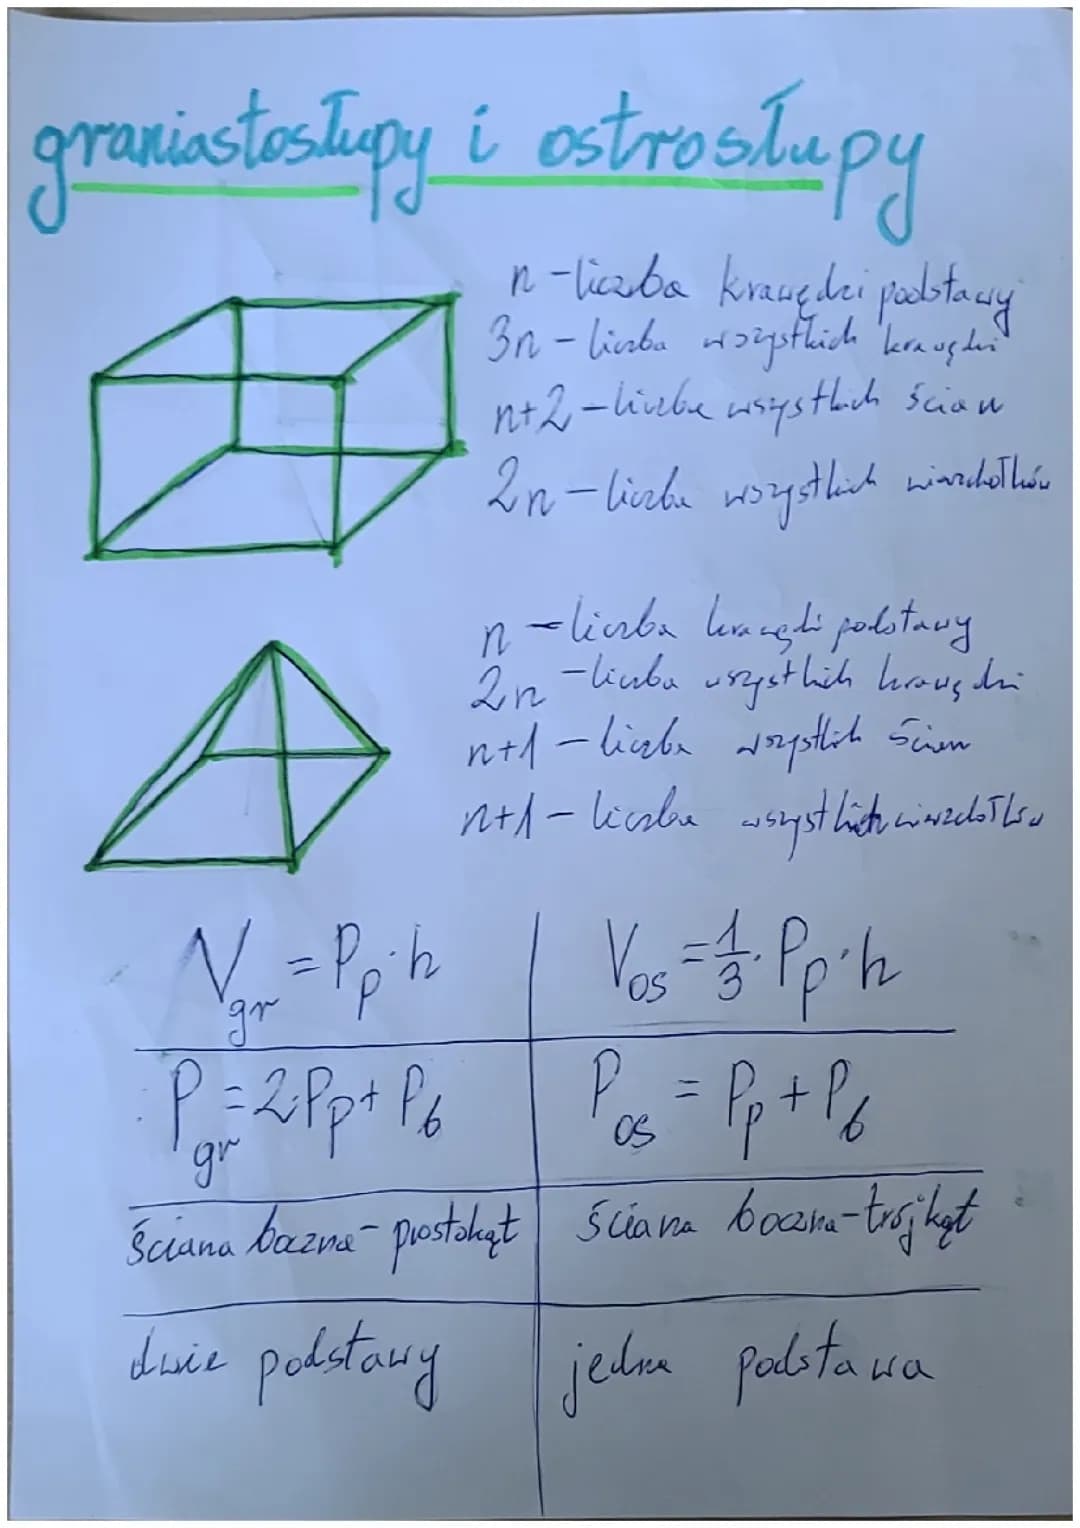 graniastosłupy i ostrosłupy
n - liczba krawędzi podstawy
3n - liczba wszystkich krawędzi
n+2 - liczba wszystkich ścian
2n - liczba wszystkich wierzchołków
n - liczba krawędzi podstawy
2n - liczba wszystkich krawędzi
n+1 - liczba wszystkich ścian
n+1 - liczba wszystkich wierzchołków
V_gr = P_p · h
V_os = 1/3 · P_p · h
P_gr = 2·P_p + P_b
P_os = P_p + P_b
ściana boczna - prostokąt
ściana boczna - trójkąt
dwie podstawy
jedna podstawa